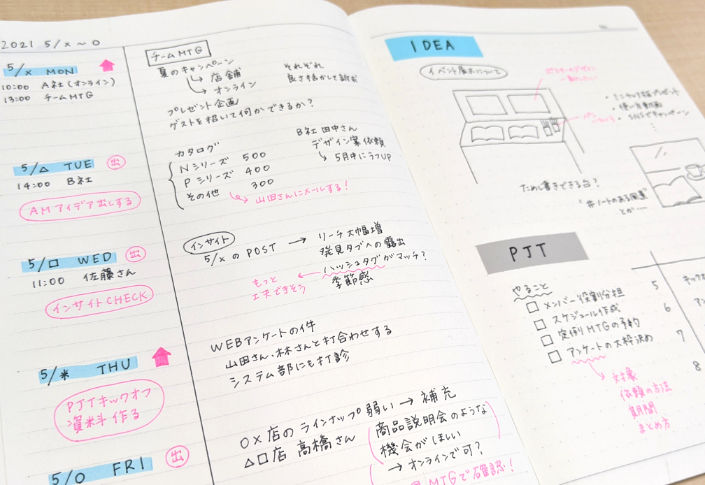 2021 5/× 〜 ○
5/× MON
10:00 A社(オンライン)
13:00 チームMTG
5/△ TUE 出
14:00 B社
AMアイデア出しする
5/□ WED 出
11:00 佐藤さん
インサイトCHECK
5/* THU
PJTキックオフ
資料作る
5/○ FRI 出
チームMTG
夏のキャンペーン
↳ 店舗
↳ オンライン
それぞれ
良さ活かして訴求
プレゼント企画
ゲストを招いて何かできるか?
カタログ
Nシリーズ 500
Pシリーズ 400
その他 300
→ 山田さんにメールする!
B社 田中さん
デザイン案 依頼
↳ 5月中にラフUP
インサイト
5/×のPOST → リーチ大幅増
発見タブへの露出
ハッシュタグがマッチ?
季節感
もっと
工夫できそう
WEBアンケートの件
山田さん・林さんと打合わせする
システム部にも打診
○×店のラインナップ弱い → 補充
△□店 高橋さん
商品説明会のような
機会がほしい
→ オンラインで可?
MTGで確認!
IDEA
イベント展示について
ためし書きできる台?
"#ノートのある風景"
とか…
PJT
やること
□ メンバー役割分担
□ スケジュール作成
□ 定例MTGの予約
□ アンケートの大枠決め
対象
依頼の方法
期間
まとめ方
5
6
7
8